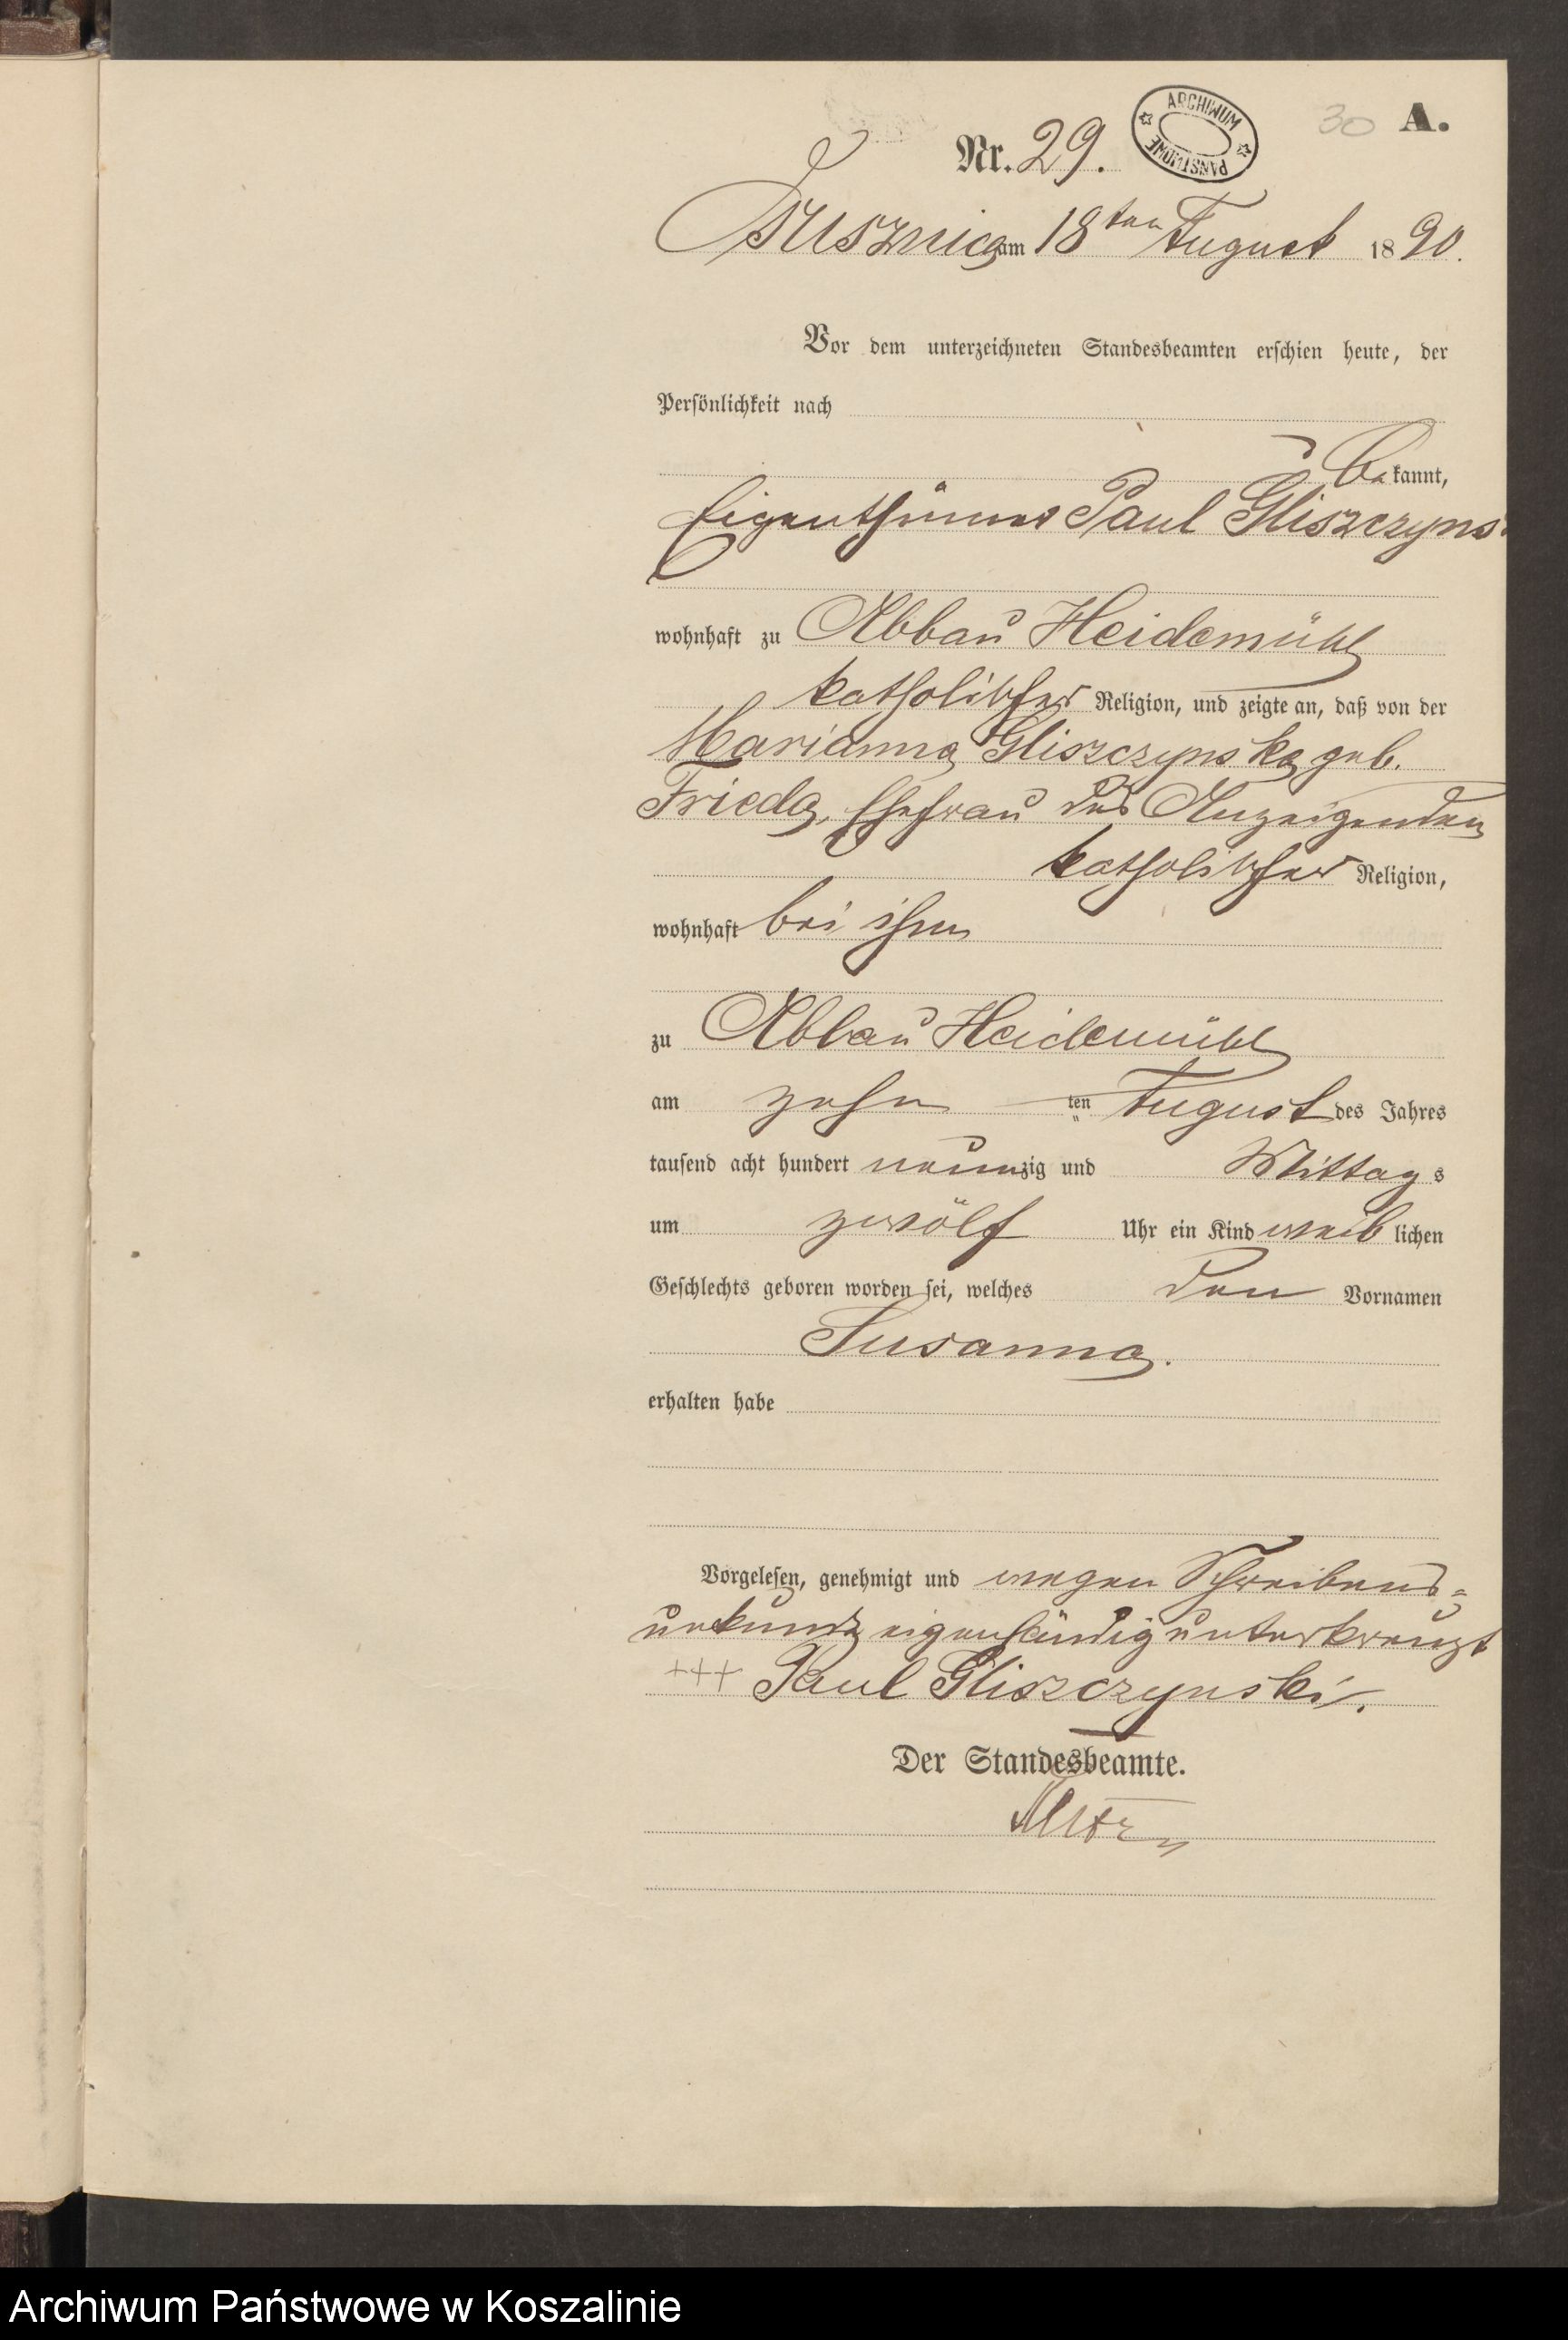 30 A.
Nr. 29.
ARCHIWUM PAŃSTWOWE
am 18ten August 1890.
Vor dem unterzeichneten Standesbeamten erschien heute, der
Persönlichkeit nach
bekannt,
Eigenthümer Paul Gliszczyns
wohnhaft zu Abbau Heidemühl
katholischer Religion, und zeigte an, daß von der
Marianna Gliszczynska geb.
Frieda, Ehefrau des Anzeigenden
katholischer Religion,
wohnhaft bei ihm
zu Abbau Heidemühl
am zehn ten August des Jahres
tausend acht hundert neunzig und Mittags
um zwölf Uhr ein Kind weiblichen
Geschlechts geboren worden sei, welches den Vornamen
Susanna.
erhalten habe
Vorgelesen, genehmigt und wegen Schreibens-
unkunde eigenhändig unterkreuzt
+++ Paul Gliszczynski.
Der Standesbeamte.
Archiwum Państwowe w Koszalinie